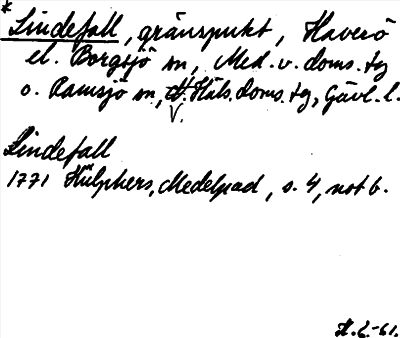 * Lindefall, gränspunkt, Haverö
el. Borgsjö sn, Med. v. doms. tg
o. Ramsjö sn, V. Häls. doms. tg, Gävl. l.
Lindefall
1771 Hülphers, Medelpad, s. 4, not 6.
H. G. -61.